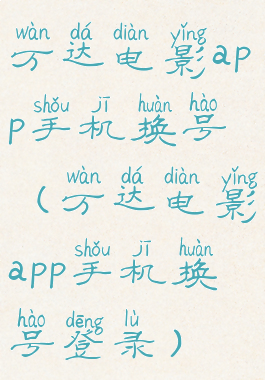 wàn dá diàn yǐng
万达电影ap
shǒu jī huàn hào
p手机换号
wàn dá diàn yǐng
(万达电影
shǒu jī huàn
app手机换
hào dēng lù
号登录)